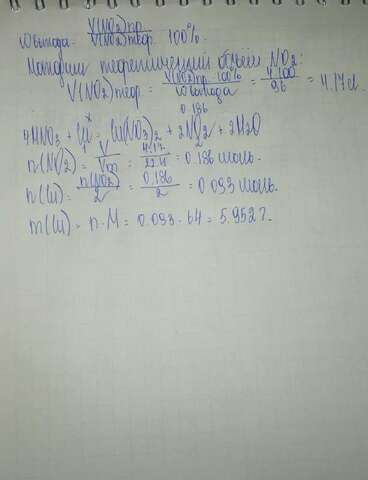 ω выхода = V(NO2)пр / V(NO2)теор · 100%.
Находим теоретический объём NO2:
V(NO2)теор = V(NO2)пр · 100% / ω выхода = 4·100 / 96 = 4.17 л.
0.186
4HNO3 + Cu = Cu(NO3)2 + 2NO2 + 2H2O
x
1 2
n(NO2) = V / Vm = 4.17 / 22.4 = 0.186 моль.
n(Cu) = n(NO2) / 2 = 0.186 / 2 = 0.093 моль.
m(Cu) = n · M = 0.093 · 64 = 5.952 г.